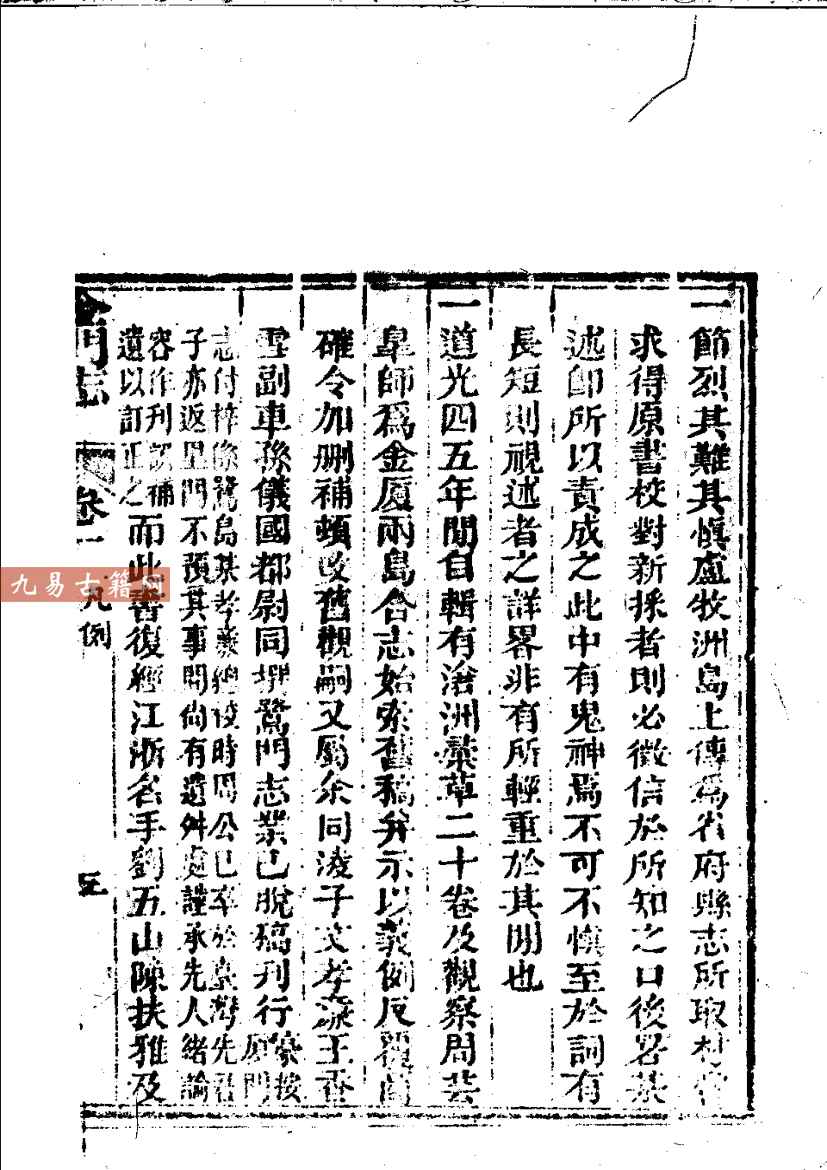 一節烈其難其慎盧牧洲島上傳爲省府縣志所取材嘗
求得原書校對新採者則必徵信於所知之口後畧某
述卽所以責成之此中有鬼神焉不可不慎至於詞有
長短則視述者之詳畧非有所輕重於其間也
一道光四五年間自輯有滄洲藁草二十卷及觀察周芸
臯師爲金厦兩島合志始索舊稿并示以義例反覆商
確令加刪補頓改舊觀嗣又屬余同淩子文孝濂王香
雪副車孫儀國都尉同撰鷺門志業已脫稿刊行
豪按
厦門
志付梓係鷺島某孝義總役時周公已卒於臺灣先君
子亦返里門不預其事間尚有遺舛處謹承先人緒論
容作刋誤補
遺以訂正之
而此書復經江浙名手劉五山陳扶雅及
金門志 卷一 凡例 五
九易古籍网